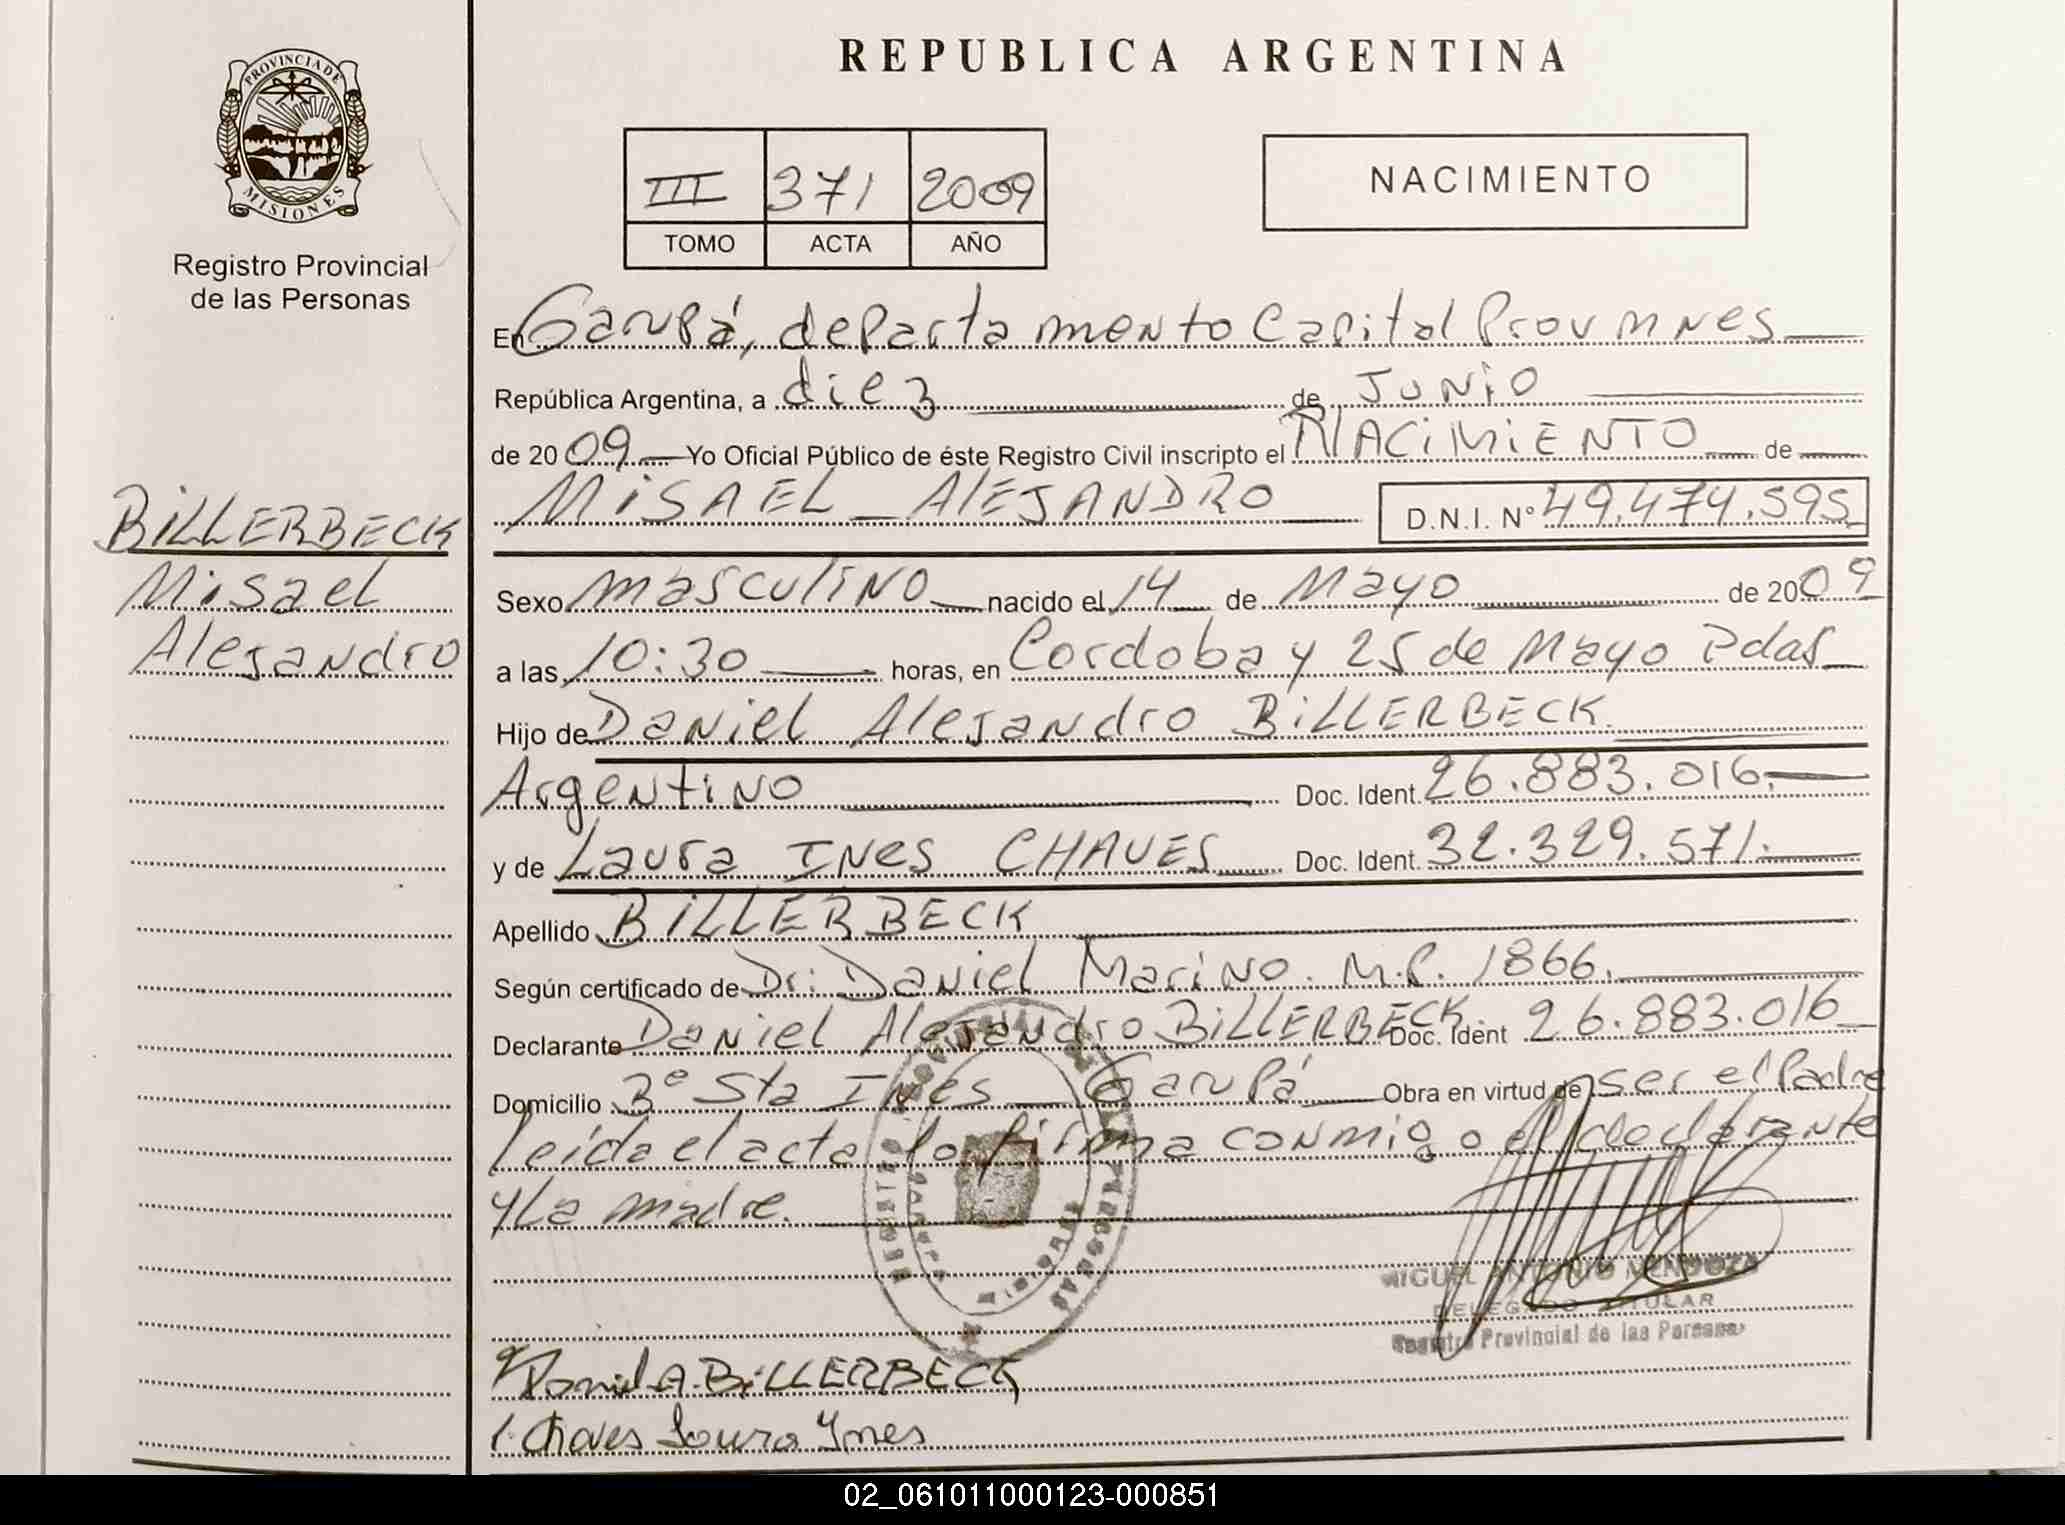 PROVINCIA DE
MISIONES
Registro Provincial
de las Personas
BILLERBECK
Misael
Alejandro
REPUBLICA ARGENTINA
III 371 2009
TOMO ACTA AÑO
NACIMIENTO
En Garupá, departamento Capital Prov Mnes
República Argentina, a diez de Junio
de 2009 Yo Oficial Público de éste Registro Civil inscripto el NACIMIENTO de
MISAEL ALEJANDRO D.N.I. N° 49.474.595
Sexo masculino nacido el 14 de Mayo de 2009
a las 10:30 horas, en Cordoba y 25 de Mayo Pdas
Hijo de Daniel Alejandro BILLERBECK
Argentino Doc. Ident. 26.883.016.
y de Laura Ines CHAVES Doc. Ident. 32.329.571.
Apellido BILLERBECK
Según certificado de Dr: Daniel Marino. M.P. 1866.
Declarante Daniel Alejandro BILLERBECK. Doc. Ident 26.883.016
Domicilio 3° Sta Ines Garupá Obra en virtud de ser el Padre
leída el acta la firma conmigo el declarante
y La madre.
MIGUEL ANTONIO MENDOZA
DELEGADO TITULAR
Registro Provincial de las Personas
Daniel A. BILLERBECK
Chaves Laura Ynes
02_061011000123-000851